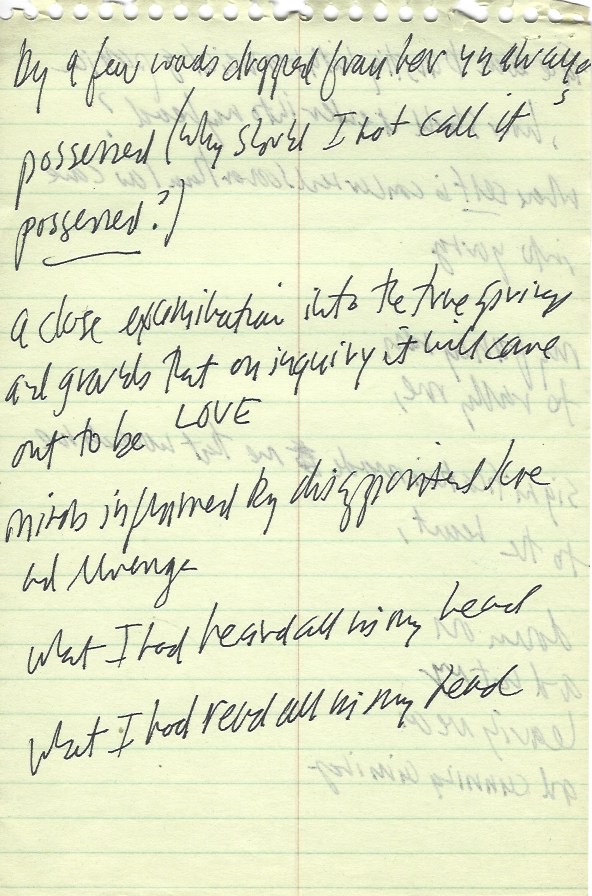 by a few words dropped from her
possessed (why should I not call it
possessed?)
a close examination into the true springs
and grounds that on inquiry it will come
out to be LOVE
minds inflamed by disappointed love
and revenge
what I had heard all in my head
what I had read all in my head